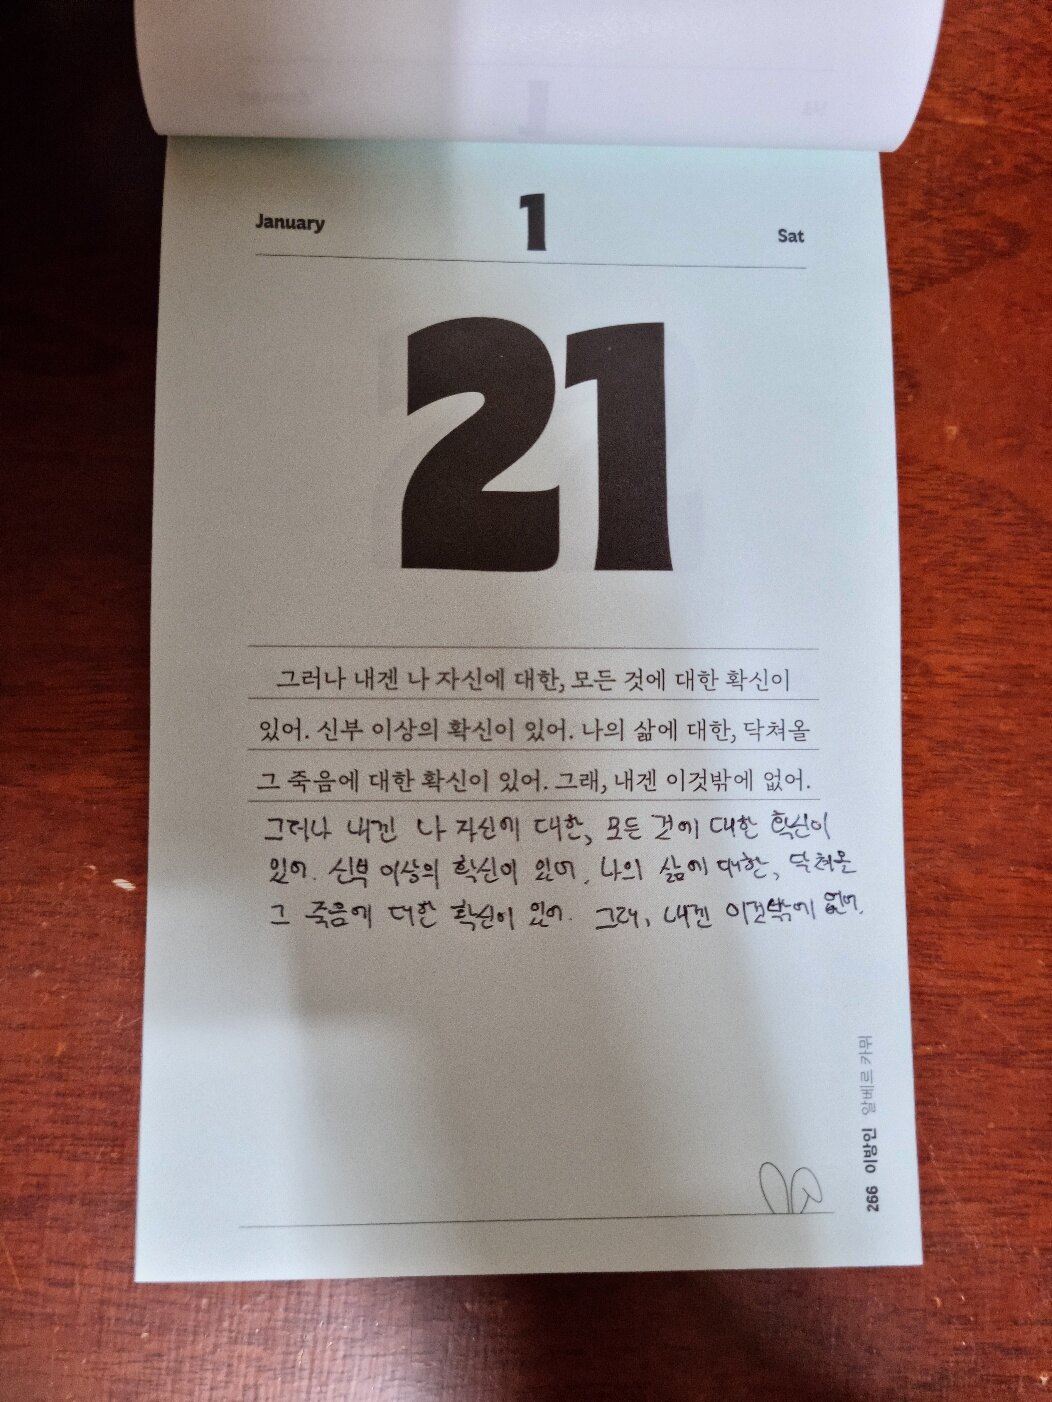 January 1 Sat
21
그러나 내겐 나 자신에 대한, 모든 것에 대한 확신이
있어. 신부 이상의 확신이 있어. 나의 삶에 대한, 닥쳐올
그 죽음에 대한 확신이 있어. 그래, 내겐 이것밖에 없어.
그러나 내겐 나 자신에 대한, 모든 것에 대한 확신이
있어. 신부 이상의 확신이 있어. 나의 삶에 대한, 닥쳐올
그 죽음에 대한 확신이 있어. 그래, 내겐 이것밖에 없어.
266 이방인 알베르 카뮈